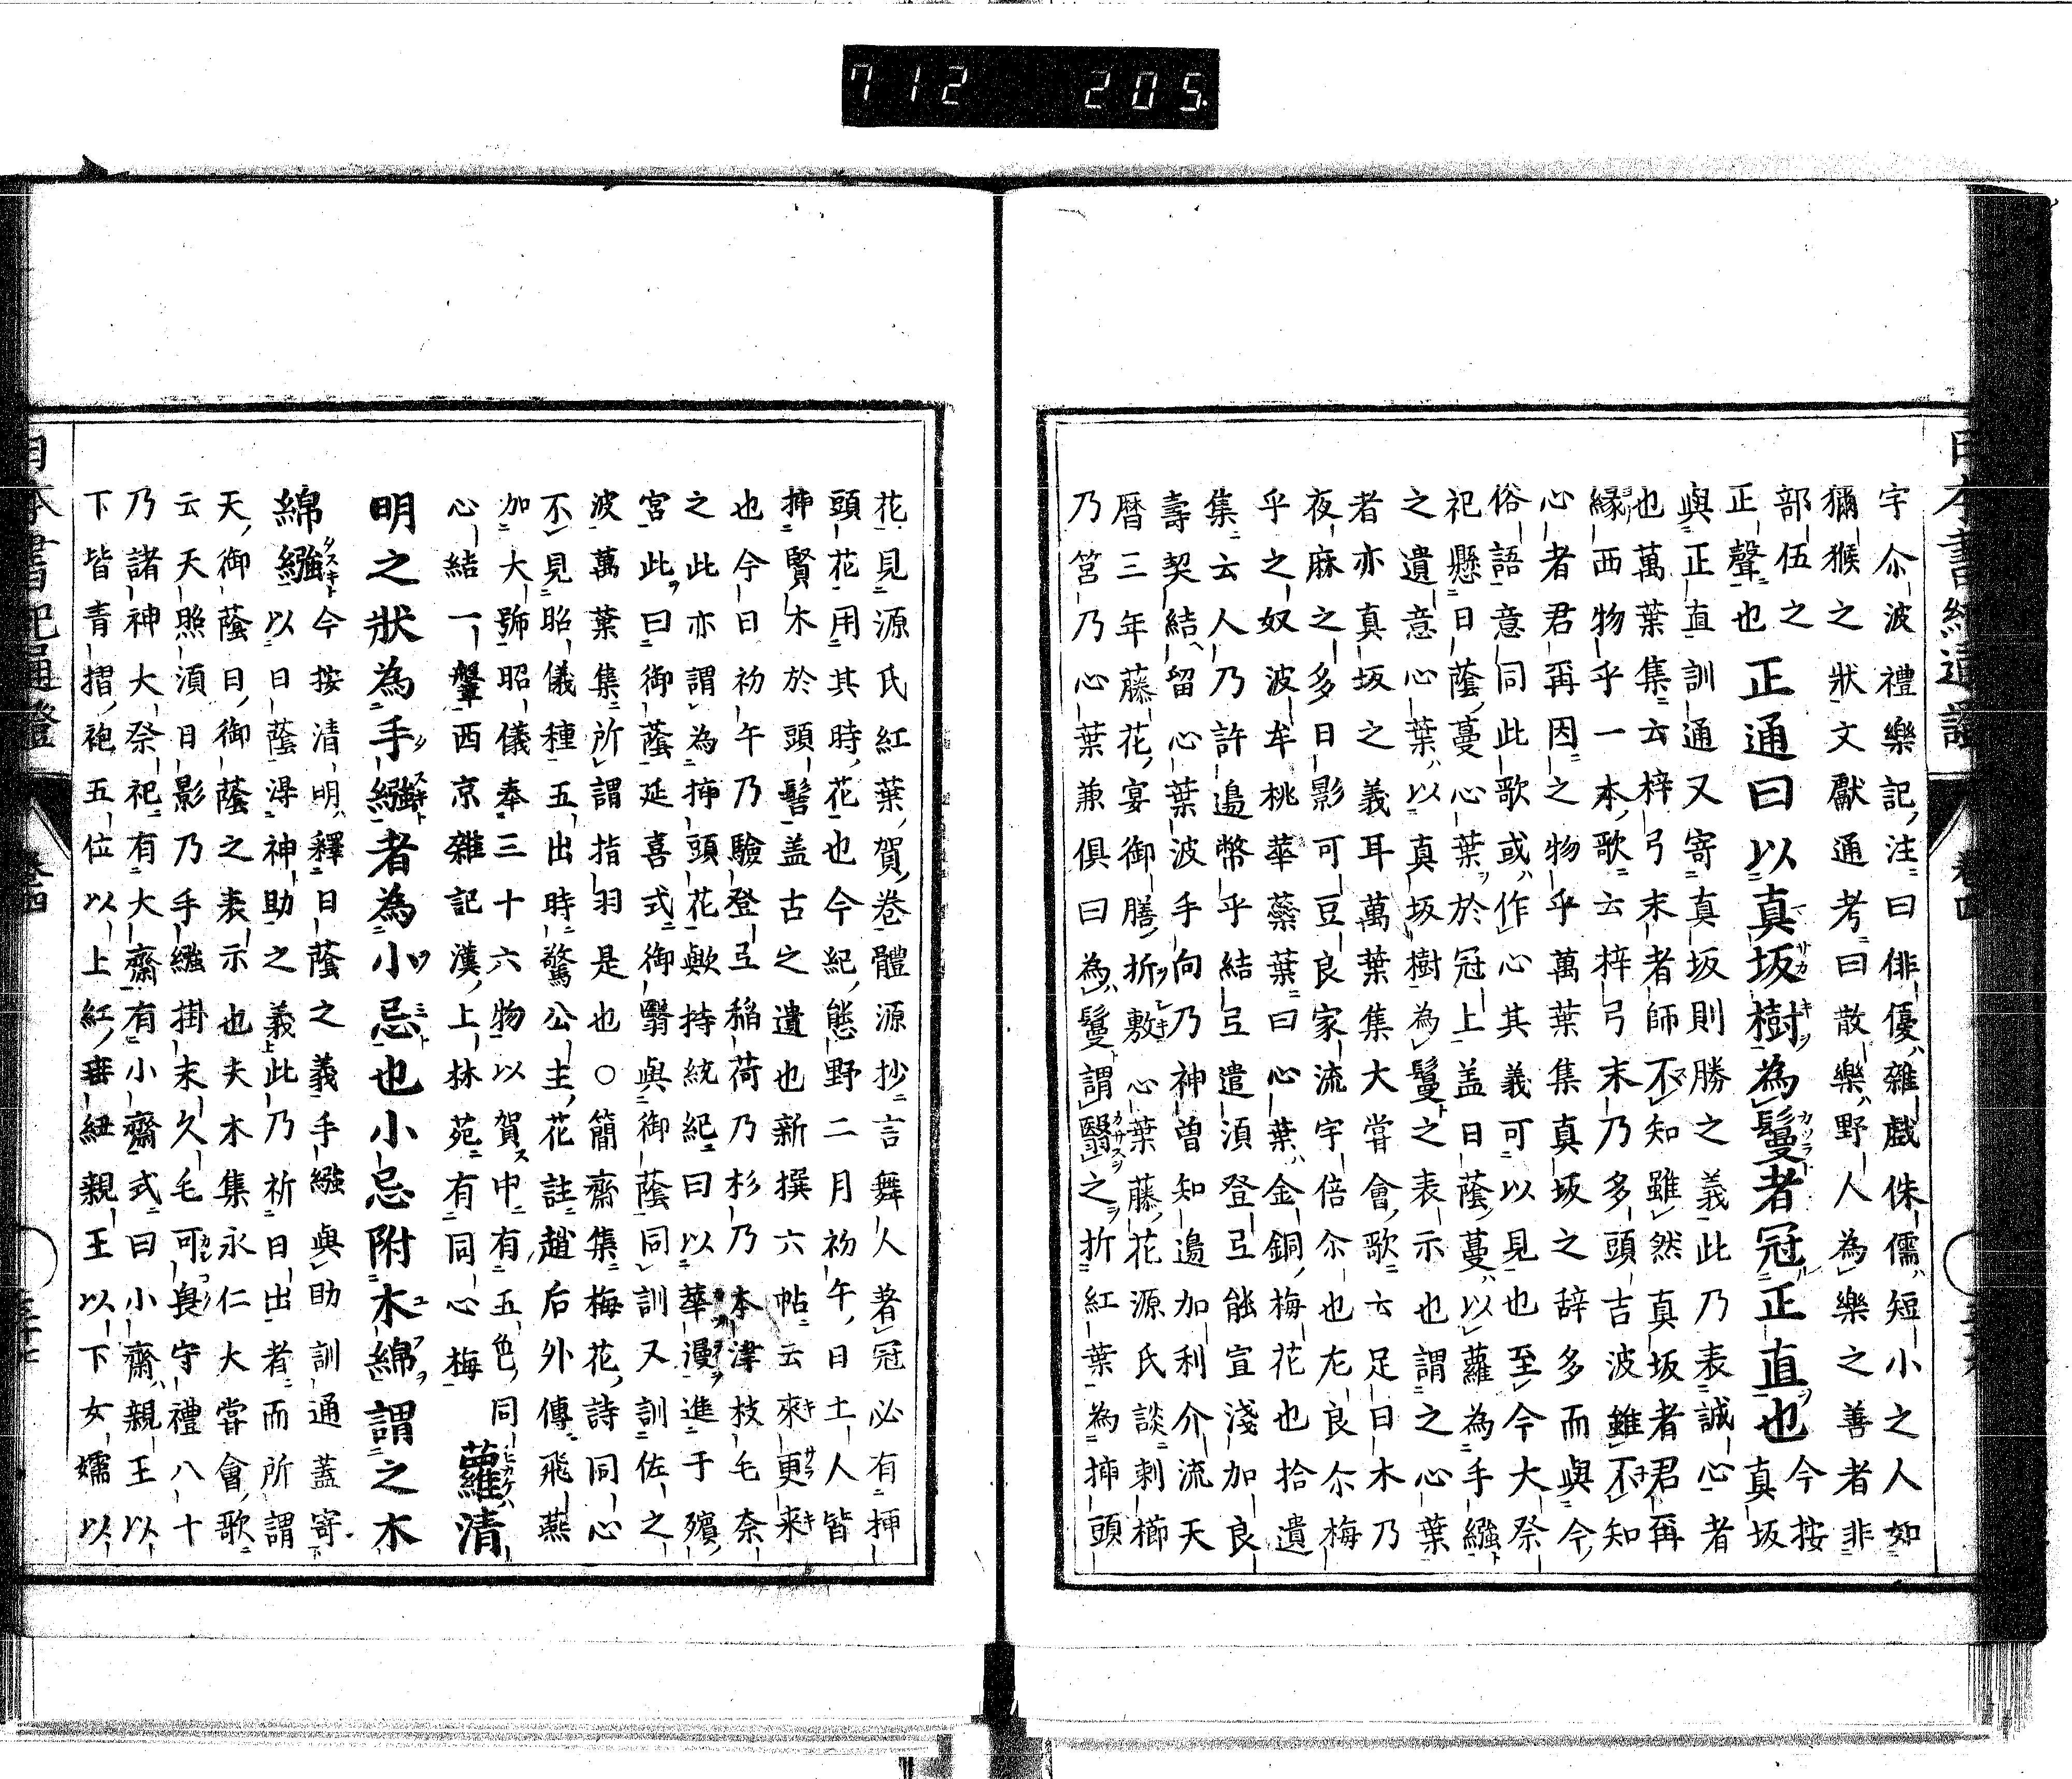 712 205.
宇尒波禮樂記注曰俳優雜戲侏儒短小之人如
獼猴之狀文獻通考曰散樂野人為樂之善者非
部伍之
正聲也
正通曰以真坂樹為鬘者冠正直也
今按
真坂
與正直訓通又寄真坂則勝之義此乃表誠心者
也萬葉集云梓弓末者師不知雖然真坂者君再
緣西物乎一本歌云梓弓末乃多頭吉波雖不知
心者君再因之物乎萬葉集真坂之辞多而與今
俗語意同此歌或作心其義可以見也至今大祭
祀懸日蔭蔓心葉於冠上盖日蔭蔓以蘿為手繦
之遺意心葉以真坂樹為鬘之表示也謂之心葉
者亦真坂之義耳萬葉集大甞會歌云足日木乃
夜麻之多日影可豆良家流宇倍尒也左良尒梅
乎之奴波牟桃華蘂葉曰心葉金銅梅花也拾遺
集云人乃許邉幣乎結弖遣須登弖能宣淺加良
壽契結留心葉波手向乃神曽知邉加利介流天
暦三年藤花宴御膳折敷心葉藤花源氏談刺櫛
乃筥乃心葉兼俱曰為鬘謂翳之折紅葉為揷頭
日本書紀通證 卷四
花見源氏紅葉賀卷體源抄言舞人著冠必有揷
頭花用其時花也今紀熊野二月初午日土人皆
揷賢木於頭髻盖古之遺也新撰六帖云來更来
也今日初午乃驗登弖稲荷乃杉乃本津枝毛奈
之此亦謂為揷頭花歟持統紀曰以華漫進于殯
宮此曰御蔭延喜式御翳與御蔭同訓又訓佐之
波萬葉集所謂指羽是也○簡齋集梅花詩同心
不見昭儀種五出時驚公主花註趙后外傳飛燕
加大號昭儀奉三十六物以賀中有五色同
心結一盤西京雜記漢上林苑有同心梅
蘿清
明之狀為手繦者為小忌也小忌附木綿謂之木
綿繦
今按清明釋日蔭之義手繦與助訓通蓋寄
以日蔭淂神助之義此乃祈日出者而所謂
天御蔭日御蔭之表示也夫木集永仁大甞會歌
云天照須日影乃手繦掛末久毛可與守禮八十
乃諸神大祭祀有大齋有小齋式曰小齋親王以
下皆青摺袍五位以上紅垂紐親王以下女孺以
日本書紀通證 卷四